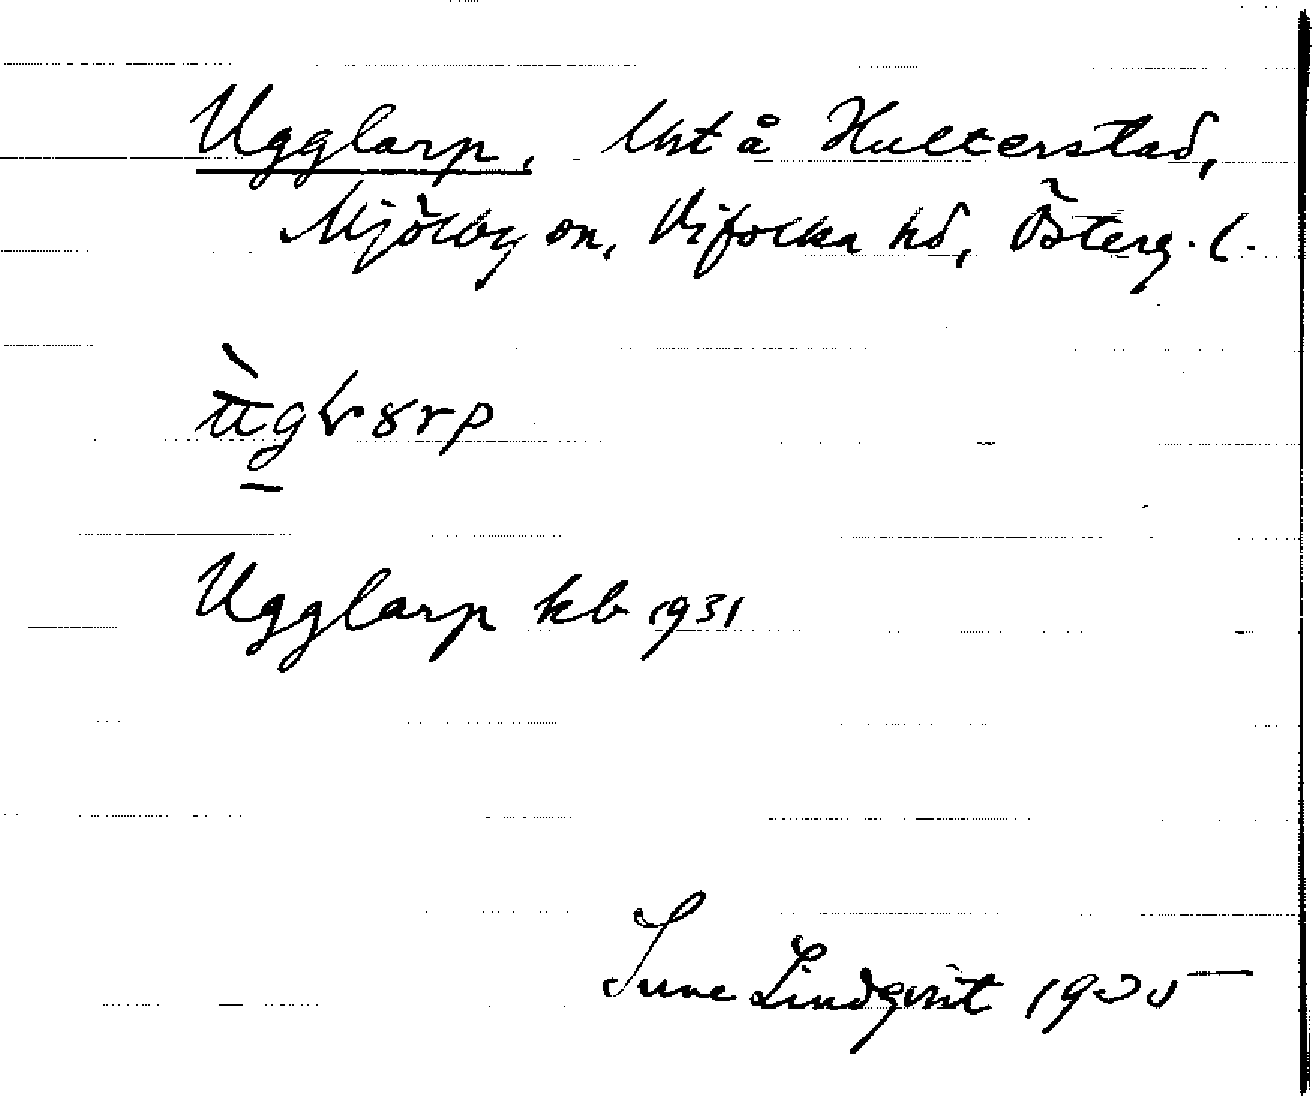 Ugglarp, lht å Hulterstad,
Mjölby sn, Vifolka hd, Österg. l.
Ugglarp kb 1931
Sune Lindqvist 1935